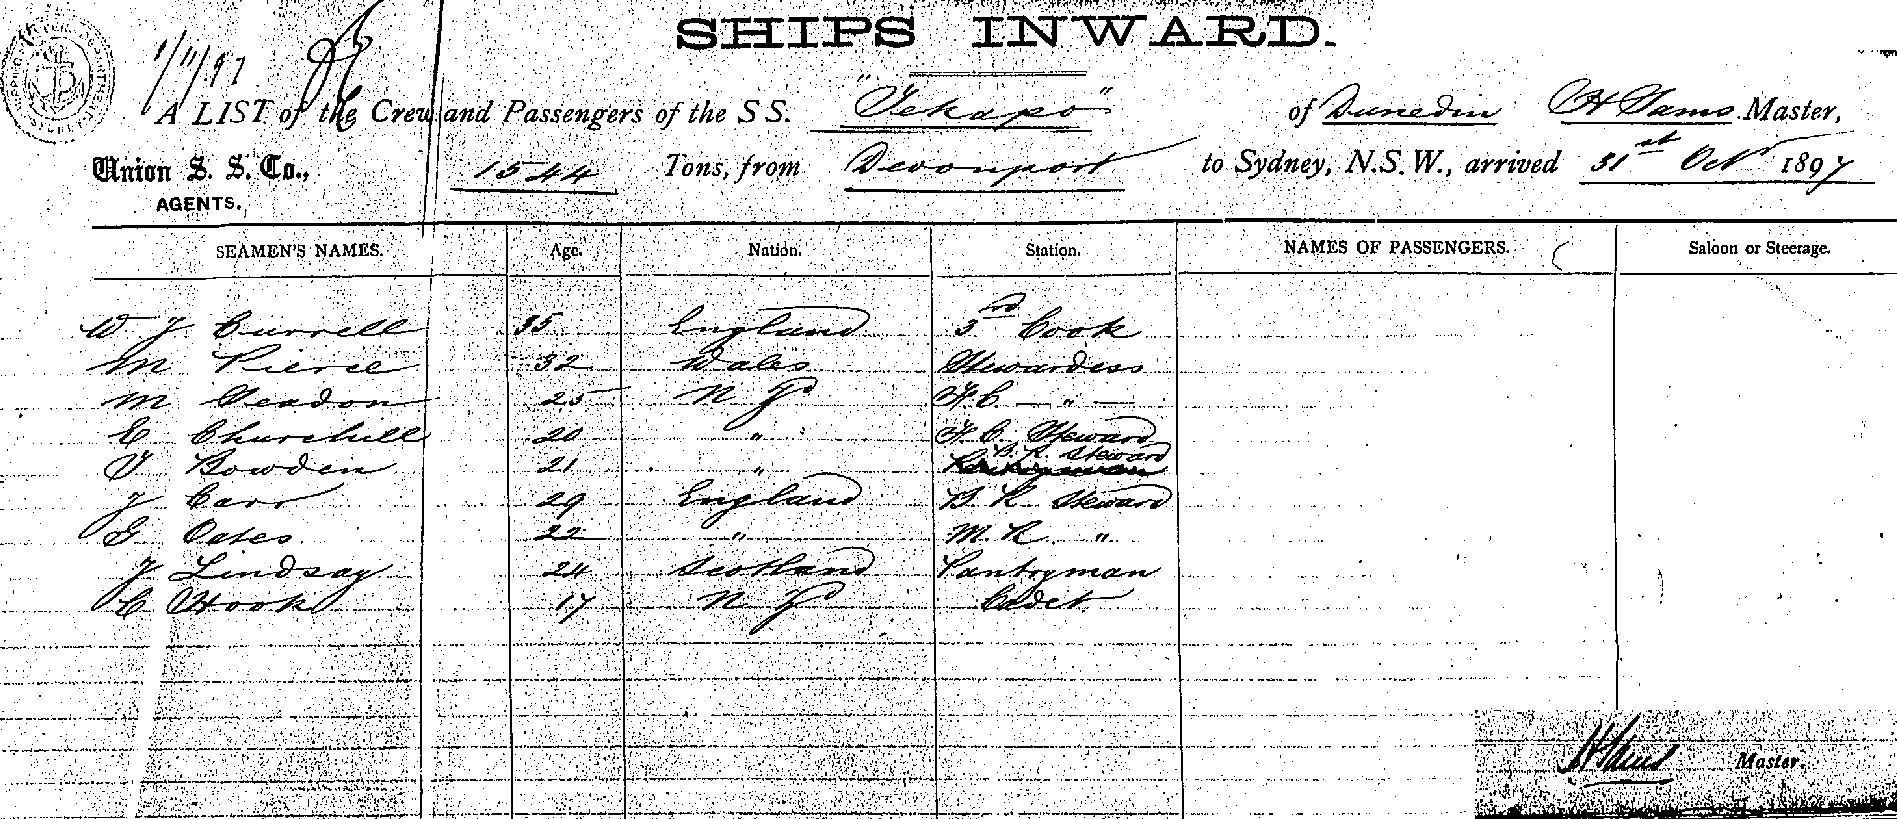 SHIPS INWARD.
1/11/97
A LIST of the Crew and Passengers of the S S. "Tekapo" of Dunedin H Sams Master,
Union S. S. Co., AGENTS. 1544 Tons, from Devonport to Sydney, N.S.W., arrived 31st Oct 1897
SEAMEN'S NAMES. Age. Nation. Station. NAMES OF PASSENGERS. Saloon or Steerage.
W J Currell 35 England 3rd Cook
M Pierce 32 Wales Stewardess
M Seadon 25 N Z F.C. — " —
E Churchill 20 " F. C. Steward
V Bowden 21 " C. R. Steward
J Carr 29 England B. R. Steward
G Oates 22 " M. R. "
J Lindsay 24 Scotland Pantryman
C Hook 17 N Z Cadet
H Sams Master